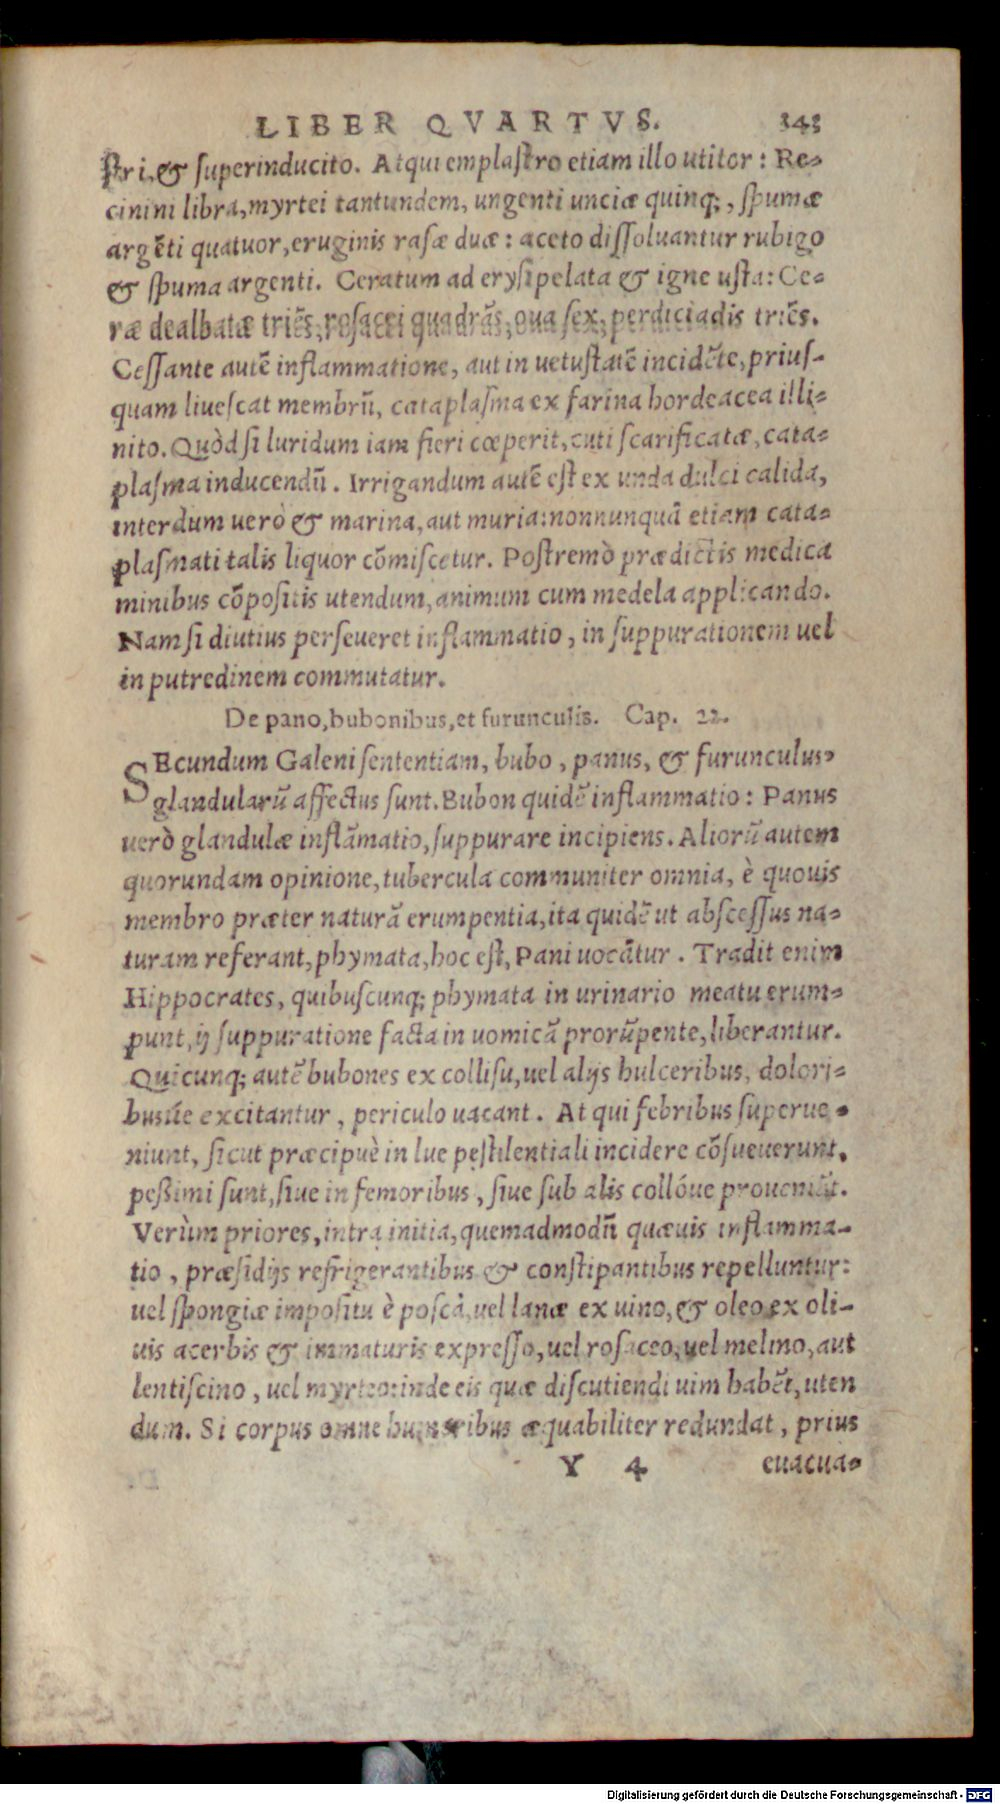 LIBER QVARTVS. 343
stri, & superinducito. Atqui emplastro etiam illo utitor: Re-
cinini libra, myrtei tantundem, ungenti unciæ quinq;, spumæ
argẽti quatuor, eruginis rasæ duæ: aceto dissoluantur rubigo
& spuma argenti. Ceratum ad erysipelata & igne usta: Ce-
ræ dealbatæ triẽs, rosacei quadrãs, oua sex, perdiciadis triẽs.
Cessante autẽ inflammatione, aut in uetustatẽ incidẽte, prius-
quam liuescat membrũ, cataplasma ex farina hordeacea illi-
nito. Quòd si luridum iam fieri cœperit, cuti scarificatæ, cata-
plasma inducendũ. Irrigandum autẽ est ex unda dulci calida,
interdum uerò & marina, aut muria: nonnunquã etiam cata-
plasmati talis liquor cõmiscetur. Postremò prædictis medica
minibus cõpositis utendum, animum cum medela applicando.
Nam si diutius perseueret inflammatio, in suppurationem uel
in putredinem commutatur.
De pano, bubonibus, et furunculis. Cap. 22.
SEcundum Galeni sententiam, bubo, panus, & furunculus,
glandularũ affectus sunt. Bubon quidẽ inflammatio: Panus
uerò glandulæ inflãmatio, suppurare incipiens. Aliorũ autem
quorundam opinione, tubercula communiter omnia, è quouis
membro præter naturã erumpentia, ita quidẽ ut abscessus na-
turam referant, phymata, hoc est, Pani uocãtur. Tradit enim
Hippocrates, quibuscunq; phymata in urinario meatu erum-
punt, ij suppuratione facta in uomicã prorũpente, liberantur.
Quicunq; autẽ bubones ex collisu, uel alijs hulceribus, dolori-
busúe excitantur, periculo uacant. At qui febribus superue-
niunt, sicut præcipuè in lue pestilentiali incidere cõsueuerunt,
peßimi sunt, siue in femoribus, siue sub alis collóue proueniãt.
Verùm priores, intra initia, quemadmodũ quæuis inflamma-
tio, præsidijs refrigerantibus & constipantibus repelluntur:
uel spongiæ impositu è poscà, uel lanæ ex uino, & oleo ex oli-
uis acerbis & immaturis expresso, uel rosaceo, uel melino, aut
lentiscino, uel myrteo: inde eis quæ discutiendi uim habẽt, uten
dum. Si corpus omne humoribus æquabiliter redundat, prius
Y 4 euacua-
Digitalisierung gefördert durch die Deutsche Forschungsgemeinschaft - DFG